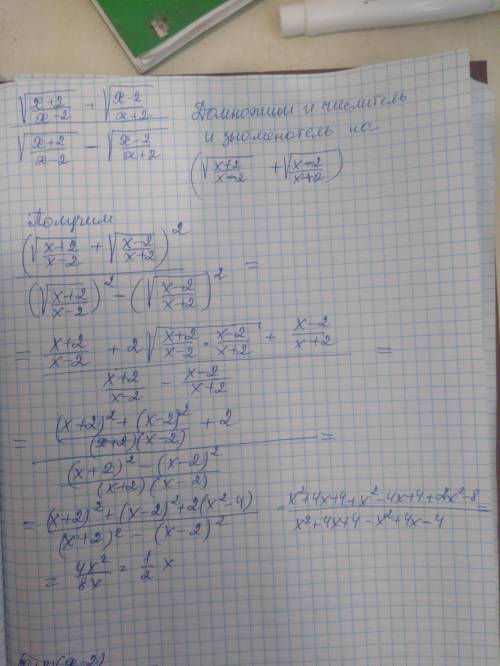 (√((x+2)/(x-2)) + √((x-2)/(x+2))) / (√((x+2)/(x-2)) - √((x-2)/(x+2)))
Домножим и числитель
и знаменатель на
(√((x+2)/(x-2)) + √((x-2)/(x+2)))
Получим
(√((x+2)/(x-2)) + √((x-2)/(x+2)))² / ((√((x+2)/(x-2)))² - (√((x-2)/(x+2)))²) =
= ((x+2)/(x-2) + 2√((x+2)/(x-2) · (x-2)/(x+2)) + (x-2)/(x+2)) / ((x+2)/(x-2) - (x-2)/(x+2)) =
= (((x+2)² + (x-2)²)/((x+2)(x-2)) + 2) / (((x+2)² - (x-2)²)/((x+2)(x-2))) =
= ((x+2)² + (x-2)² + 2(x²-4)) / ((x+2)² - (x-2)²) = (x²+4x+4+x²-4x+4+2x²-8) / (x²+4x+4-x²+4x-4) =
= 4x²/8x = 1/2 x